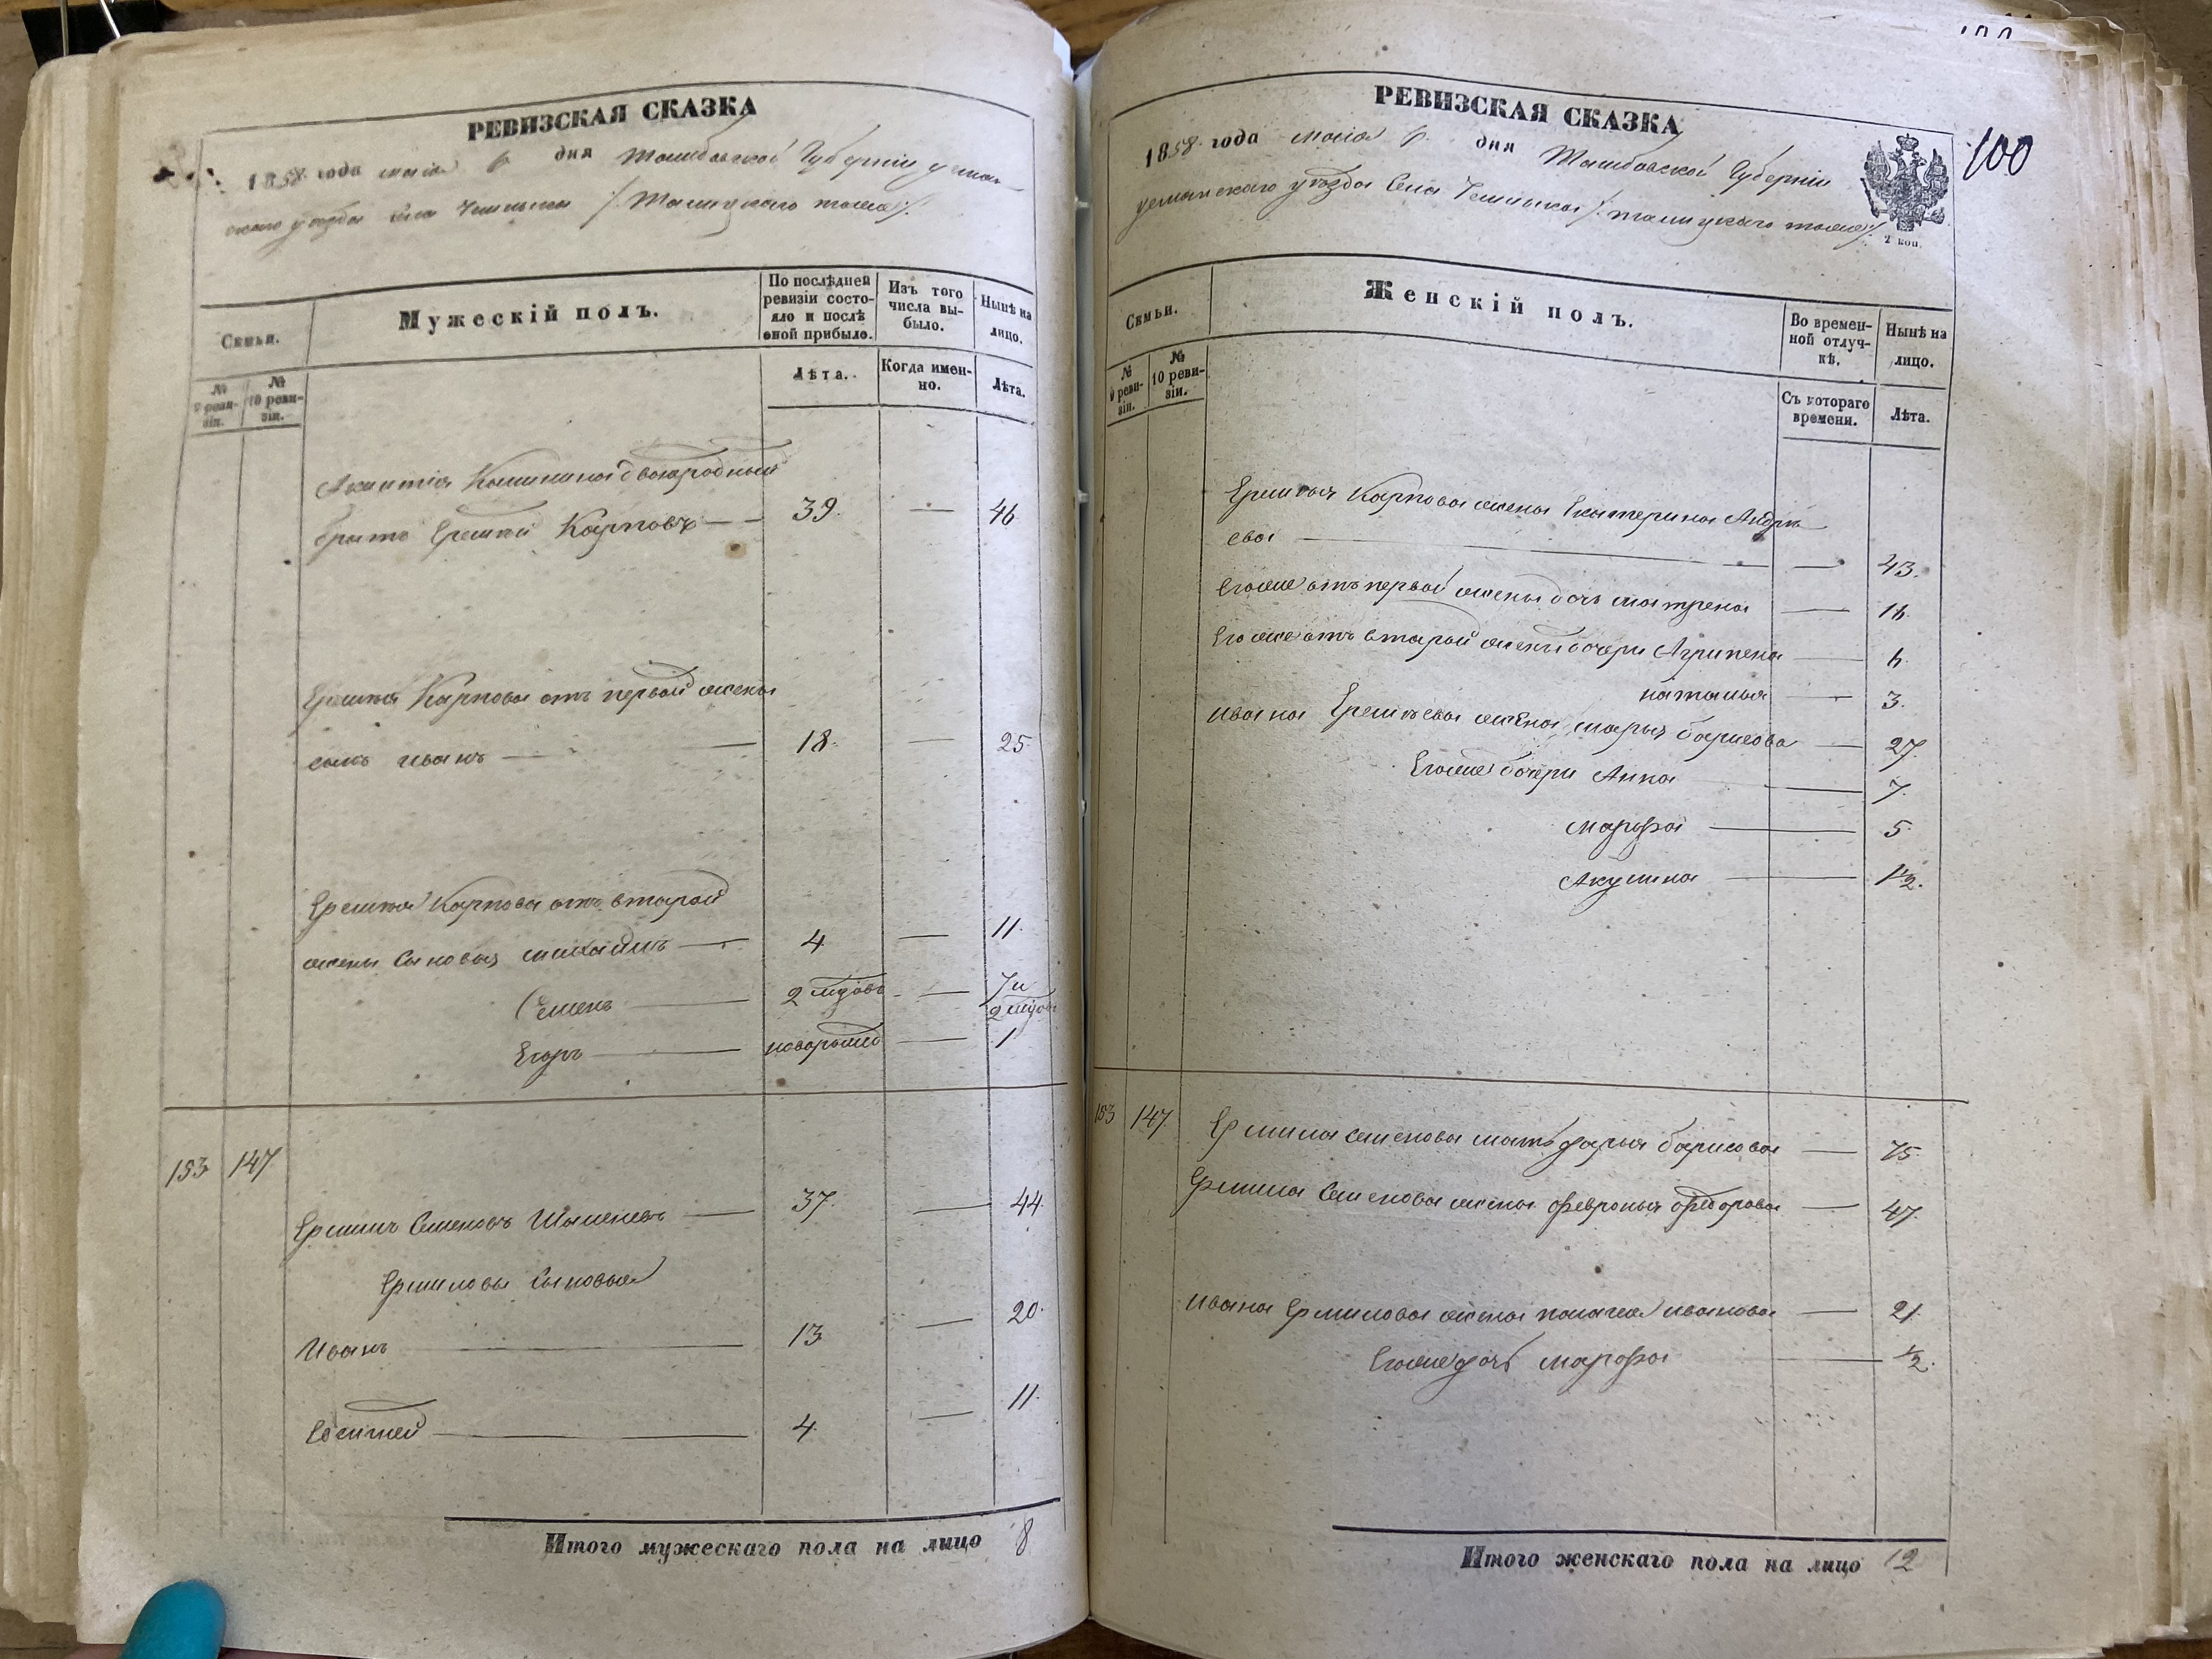 РЕВИЗСКАЯ СКАЗКА
1858 года маія 6 дня Тамбовской Губерніи усман-
скаго уѣзда села
Семьи.
Мужескій полъ.
По послѣдней ревизіи состояло и послѣ оной прибыло.
Изъ того числа выбыло.
Нынѣ на лицо.
№ 9 ревизіи.
№ 10 ревизіи.
Лѣта.
Когда именно.
Лѣта.
двоюродный
братъ Еремѣй Карповъ — 39. — 46
Еремѣя Карпова отъ первой жены
сынъ иванъ — 18. — 25.
Еремѣя Карпова отъ второй
жены сыновья михаилъ — 4 — 11.
Семенъ — 2 мѣсяц — 7 и 2 мѣсяц
Егоръ — новорожд — 1
153 147
Ермилъ Семеновъ — 37. — 44.
Ермиловы сыновья
Иванъ — 13 — 20.
Евсигней — 4. — 11.
Итого мужескаго пола на лицо 8
100
РЕВИЗСКАЯ СКАЗКА
1858 года маія 6 дня Тамбовской Губерніи
усманскаго уѣзда села
2 коп.
Семьи.
Женскій полъ.
Во временной отлучкѣ.
Нынѣ на лицо.
№ 9 ревизіи.
№ 10 ревизіи.
Съ котораго времени.
Лѣта.
Еремѣя Карпова жена Екатерина Андрѣ
ева — 43.
Егоже отъ первой жены дочь матрена — 16.
Егоже отъ второй жены дочери Агрипена — 6.
наталья — 3.
ивана Еремѣева жена марья борисова — 27
Егоже дочери Анна — 7.
марфа — 5.
Акулина — 1½.
153 147
Ермила семенова мать дарья борисова — 75.
Ермила Семенова жена февронья федорова — 47.
ивана Ермилова жена пелагея иванова — 21.
Егоже дочь марфа — ½.
Итого женскаго пола на лицо 12